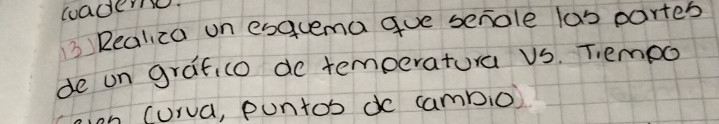 cuaderno.
13) Realiza un esquema que señale las partes
de un gráfico de temperatura vs. Tiempo
curva, puntos de cambio).